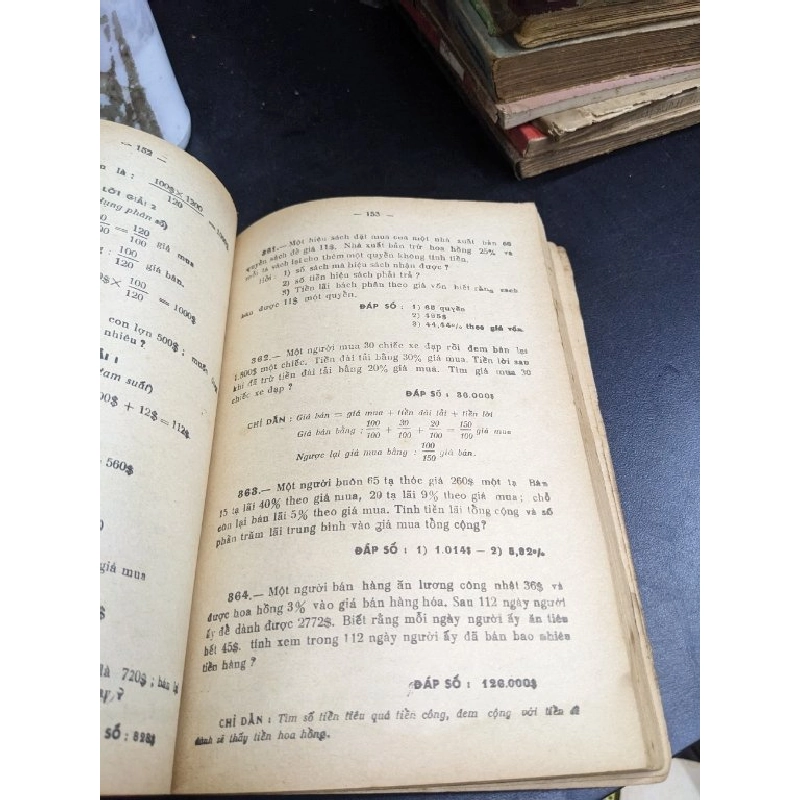 — 152 —
là : 100$ × 1200 / 120 = 1000$
LỜI GIẢI 2
dụng phân số)
= 120 / 100 giá mua
: 100 / 120 giá bán.
0$ × 100 / 120 = 1000$
con lợn 500$ ; muốn
nhiêu ?
00$ + 12$ = 112$
560$
giá mua
là 720$ ; bán lại
SỐ : 828$
— 153 —
361.— Một hiệu sách đặt mua của một nhà xuất bản 66
quyển sách đề giá 11$. Nhà xuất bản trừ hoa hồng 25% và
cho thêm một quyển không tính tiền.
Hỏi : 1) số sách mà hiệu sách nhận được ?
2) số tiền hiệu sách phải trả ?
3) Tiền lãi bách phân theo giá vốn biết rằng sách
bán được 11$ một quyển.
ĐÁP SỐ : 1) 68 quyển
2)
3) 44,44% theo giá vốn
362.— Một người mua 30 chiếc xe đạp rồi đem bán lại
1.800$ một chiếc. Tiền đài tải bằng 30% giá mua. Tiền lời sau
khi đã trừ tiền đài tải bằng 20% giá mua. Tìm giá mua 30
chiếc xe đạp ?
ĐÁP SỐ : 36.000$
CHỈ DẪN : Giá bán = giá mua + tiền đài tải + tiền lời
Giá bán bằng : 100 / 100 + 30 / 100 + 20 / 100 = 150 / 100 giá mua
Ngược lại giá mua bằng : 100 / 150 giá bán.
363.— Một người buôn 65 tạ thóc giá 260$ một tạ Bán
15 tạ lãi 40% theo giá mua, 20 tạ lãi 9% theo giá mua ; chỗ
còn lại bán lãi 5% theo giá mua. Tính tiền lãi tổng cộng và số
phần trăm lãi trung bình vào giá mua tổng cộng?
ĐÁP SỐ : 1) 1.014$ — 2) 8,82%
364.— Một người bán hàng ăn lương công nhật 36$ và
được hoa hồng 3% vào giá bán hàng hóa. Sau 112 ngày người
ấy để dành được 2772$. Biết rằng mỗi ngày người ấy ăn tiêu
hết 45$. tính xem trong 112 ngày người ấy đã bán bao nhiêu
tiền hàng ?
ĐÁP SỐ : 126.000$
CHỈ DẪN : Tìm số tiền tiêu quá tiền công, đem cộng với tiền để
dành sẽ thấy tiền hoa hồng.